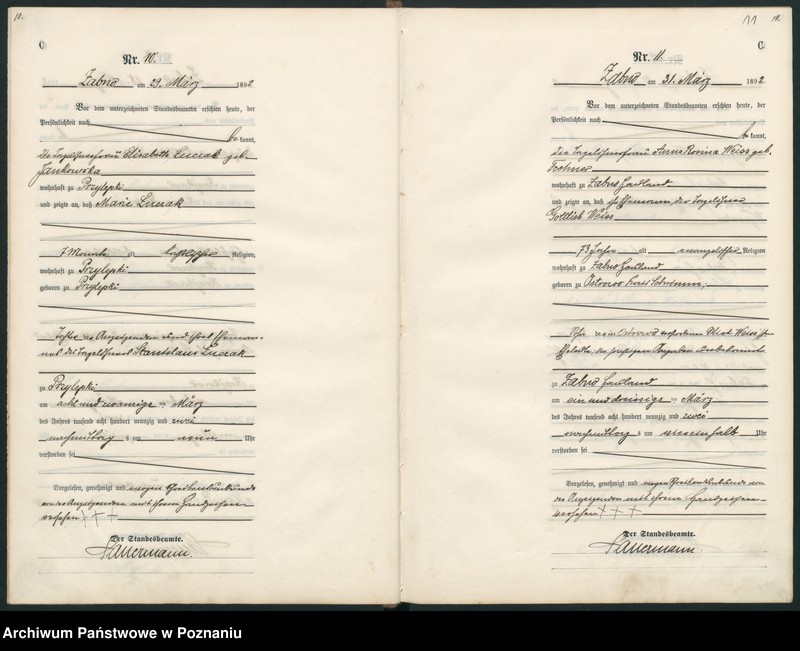 10.
C
Nr. 10.
Zabno am 29. März 1892
Vor dem unterzeichneten Standesbeamten erschien heute, der
Persönlichkeit nach
be kannt,
die Tagelöhnerfrau Elisabeth Luczak geb.
Jankowska
wohnhaft zu Przylepki
und zeigte an, daß Marie Luczak
7 Monate alt katholischer Religion,
wohnhaft zu Przylepki
geboren zu Przylepki
Tochter der Anzeigenden und ihres Eheman-
nes des Tagelöhners Stanislaus Luczak
zu Przylepki
am acht und zwanzigsten März
des Jahres tausend acht hundert neunzig und zwei
nachmittags um neun Uhr
verstorben sei
Vorgelesen, genehmigt und wegen Schreibensunkunde
von der Anzeigenden mit ihrem Handzeichen
versehen +++
Der Standesbeamte.
Sauermann.
11
11.
C.
Nr. 11.
Zabno am 31. März 1892
Vor dem unterzeichneten Standesbeamten erschien heute, der
Persönlichkeit nach
be kannt,
die Tagelöhnerfrau Anna Rosina Weiss geb.
wohnhaft zu Zabno Hauland
und zeigte an, daß ihr Ehemann, der Tagelöhner
Gottlieb Weiss
73 Jahre alt evangelischer Religion
wohnhaft zu Zabno Hauland
geboren zu Ostrowo Kreis Schrimm,
Sohn in Ostrowo verstorbenen Weiss
zu Zabno Hauland
am ein und dreissigsten März
des Jahres tausend acht hundert neunzig und zwei
nachmittags um Uhr
verstorben sei
Vorgelesen, genehmigt und wegen Schreibensunkunde von
der Anzeigenden mit ihrem Handzeichen
versehen +++
Der Standesbeamte.
Sauermann.
Archiwum Państwowe w Poznaniu